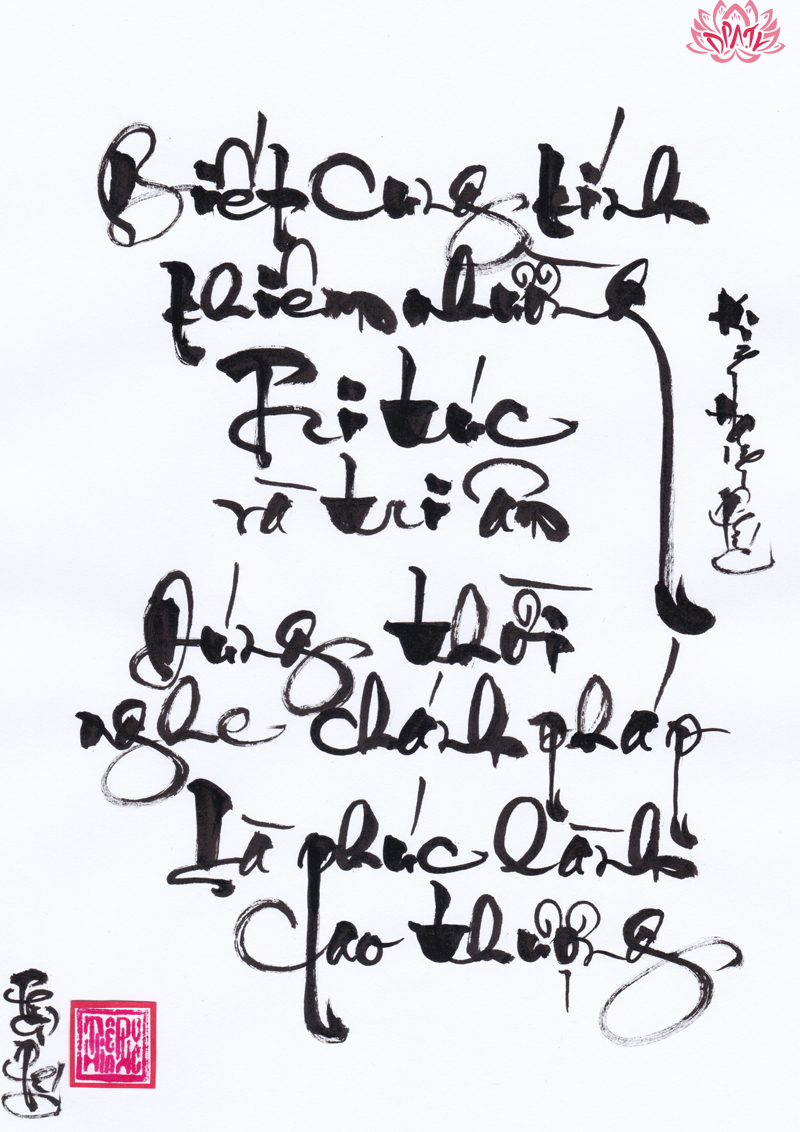 Biết Cung kính
khiêm nhường
Tri túc
và tri ân
Đúng thời
nghe chánh pháp
Là phúc lành
cao thượng
Kinh Hạnh Phúc